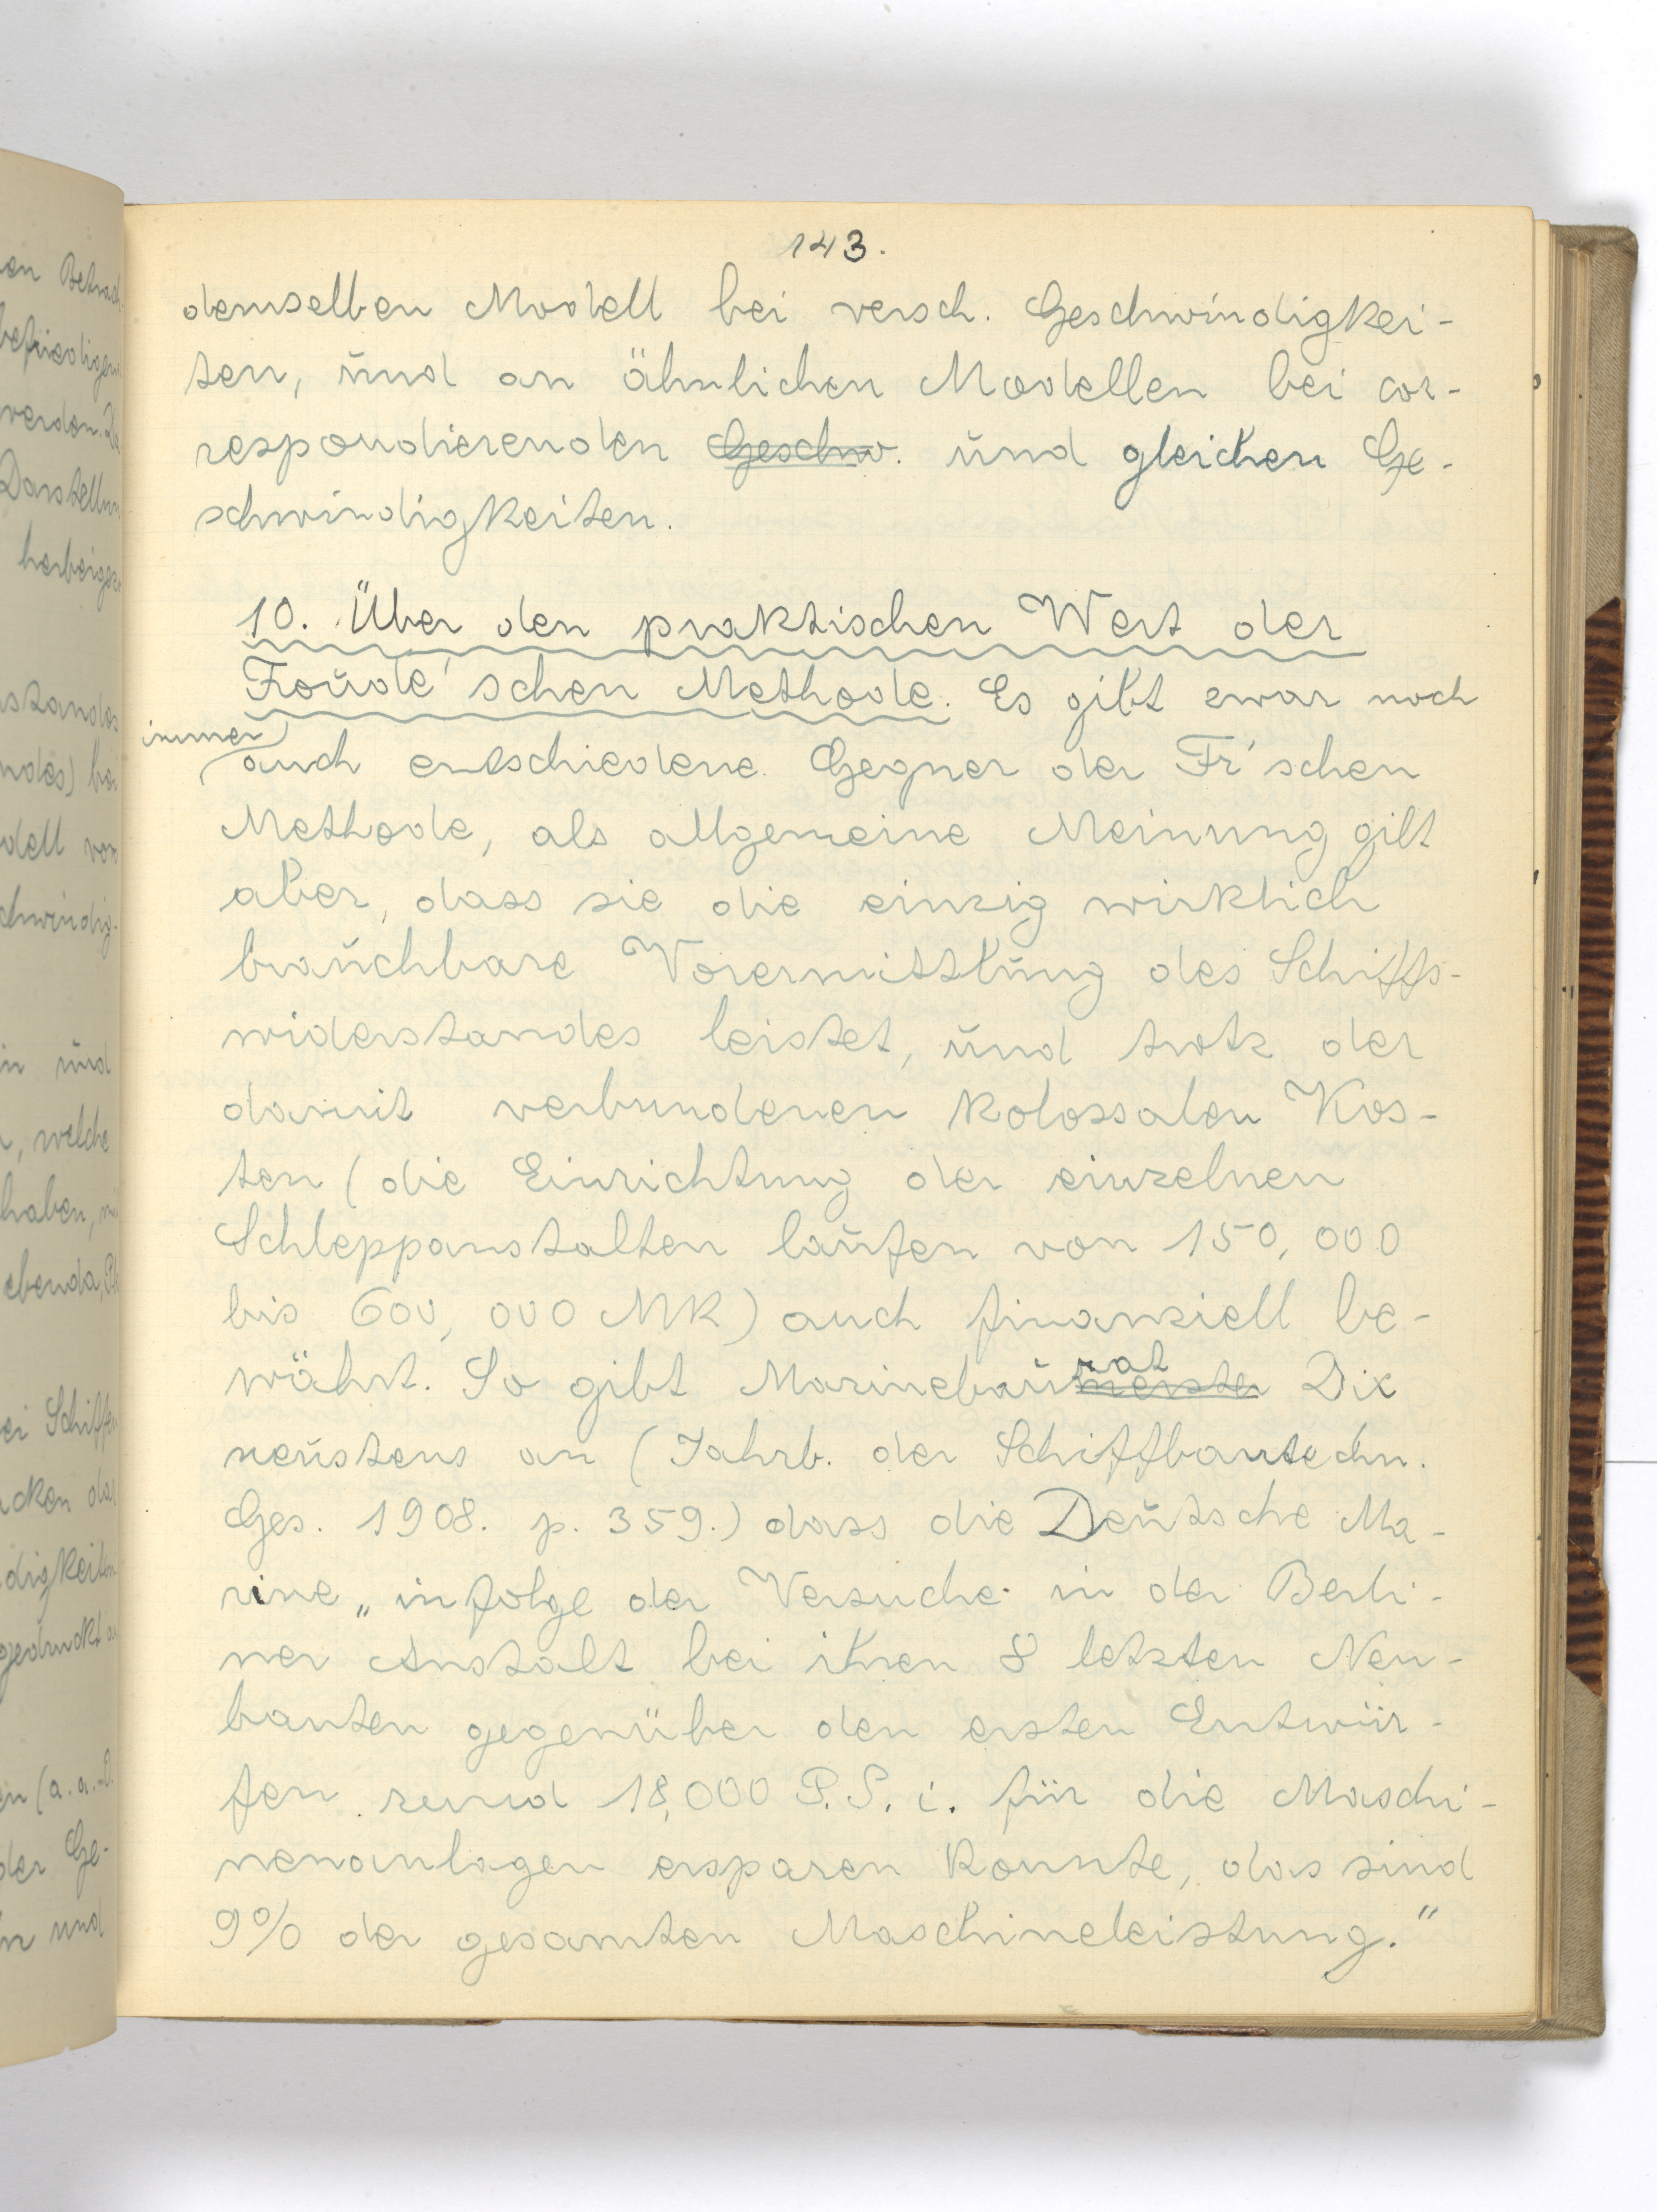 143.
demselben Modell bei versch. Geschwindigkei-
ten, und an ähnlichen Modellen bei cor-
respondierenden Geschw. und gleichen Ge-
schwindigkeiten.
10. Über den praktischen Wert der
Froude'schen Methode. Es gibt zwar noch
immer
auch entschiedene Gegner der Fr'schen
Methode, als allgemeine Meinung gilt
aber, dass sie die einzig wirklich
brauchbare Vorermittlung des Schiffs-
widerstandes leistet, und trotz der
damit verbundenen kolossalen Kos-
ten (die Einrichtung der einzelnen
Schleppanstalten laufen von 150,000
bis 600,000 MK) auch finanziell be-
währt. So gibt Marinebaurat meister Dix
neustens an (Jahrb. der Schiffbautechn.
Ges. 1908. p. 359.) dass die Deutsche Ma-
rine „infolge der Versuche in der Berli-
ner Anstalt bei ihren 8 letzten Neu-
bauten gegenüber den ersten Entwür-
fen rund 18,000 P.S. i. für die Maschi-
nenanlagen ersparen konnte, das sind
9% der gesamten Maschineleistung."
en Betrach
befriedigen
werden.
Darstellun
herbeigez
standes
ndes) bei
dell von
chwindig-
in und
, welche
haben,
ebenda,
ei Schiffen
cken das
digkeiten
gedruckt
en (a. a. O.
der Ge-
n und